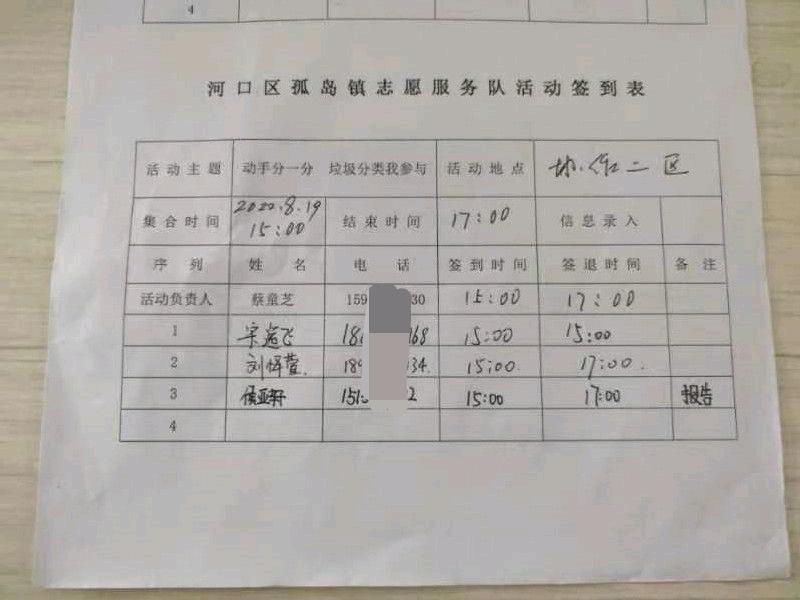 4
河口区孤岛镇志愿服务队活动签到表
活动主题 动手分一分 垃圾分类我参与 活动地点 协作二区
集合时间 2022.8.19 15:00 结束时间 17:00 信息录入
序列 姓名 电话 签到时间 签退时间 备注
活动负责人 蔡童芝 159 30 15:00 17:00
1 宋 飞 18 168 15:00 15:00
2 刘 萱. 189 34. 15:00. 17:00.
3 侯亚轩 151 2 15:00 17:00 报告
4